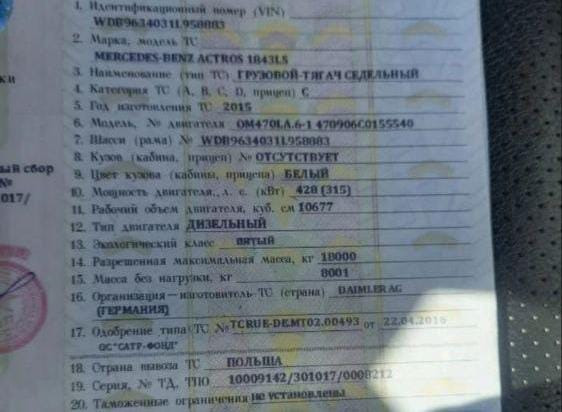 1. Идентификационный номер (VIN)
WDB9634031L958883
2. Марка, модель ТС
MERCEDES-BENZ ACTROS 1843LS
3. Наименование (тип ТС) ГРУЗОВОЙ-ТЯГАЧ СЕДЕЛЬНЫЙ
ки
4. Категория ТС (A, B, C, D, прицеп) C
5. Год изготовления ТС 2015
6. Модель, № двигателя OM470LA.6-1 470906C0155540
7. Шасси (рама) № WDB9634031L958883
8. Кузов (кабина, прицеп) № ОТСУТСТВУЕТ
ый сбор
9. Цвет кузова (кабины, прицепа) БЕЛЫЙ
№
10. Мощность двигателя, л. с. (кВт) 428 (315)
017/
11. Рабочий объем двигателя, куб. см 10677
12. Тип двигателя ДИЗЕЛЬНЫЙ
13. Экологический класс пятый
14. Разрешенная максимальная масса, кг 18000
15. Масса без нагрузки, кг 8001
16. Организация-изготовитель ТС (страна) DAIMLER AG
(ГЕРМАНИЯ)
17. Одобрение типа ТС № TCRUE-DE.MT02.00493 от 22.04.2016
ОС"САТР-ФОНД"
18. Страна вывоза ТС ПОЛЬША
19. Серия, № ТД, ТПО 10009142/301017/0008212
20. Таможенные ограничения не установлены